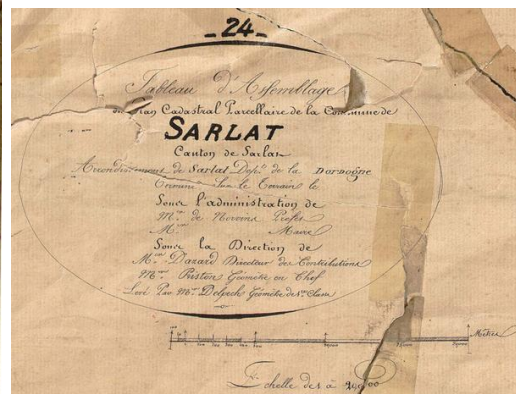 -24-
Tableau d'Assemblage
Plan Cadastral Parcellaire de la Commune de
SARLAT
Canton de Sarlat
Arrondissement de Sarlat Dépt. de la Dordogne
Terminé sur le Terrain le
Sous l'administration de
Mr. de Préfet
Mr. Maire
Sous la Direction de
Mr. Dazard Directeur des Contributions
Mr. Riston Géomètre en Chef
Levé Par Mr. Delpech Géomètre de 1ère Classe
Mètres
Echelle de 1 à